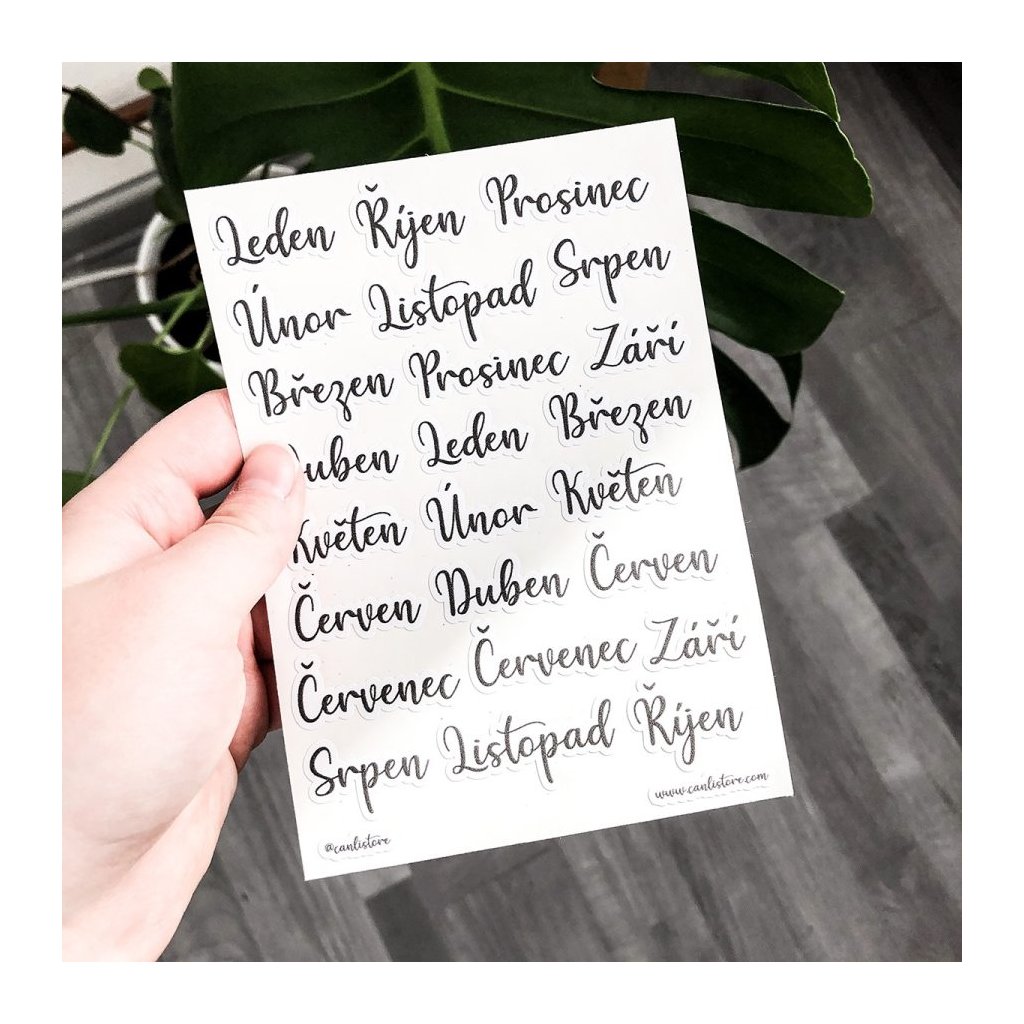 Leden Říjen Prosinec
Únor Listopad Srpen
Březen Prosinec Září
Duben Leden Březen
Květen Únor Květen
Červen Duben Červen
Červenec Červenec Září
Srpen Listopad Říjen
www.canlistore.com
@canlistore